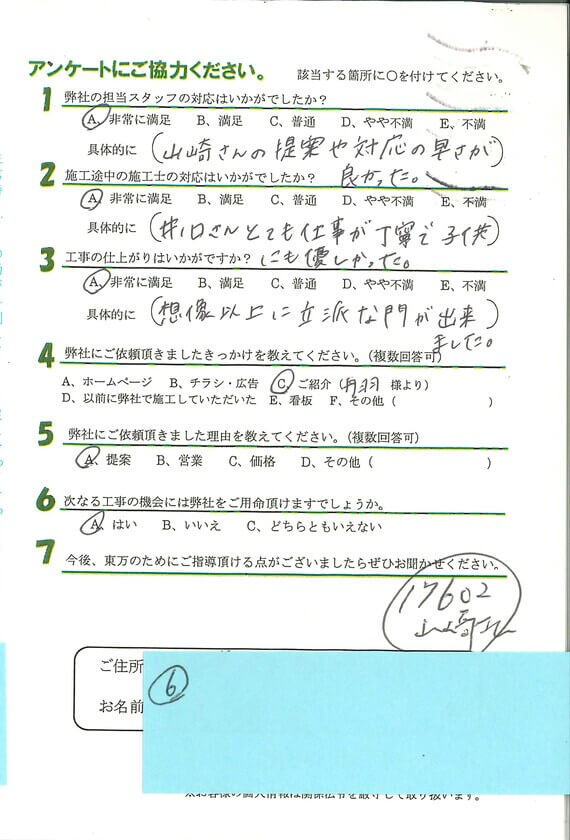 アンケートにご協力ください。 該当する箇所に○を付けてください。
1 弊社の担当スタッフの対応はいかがでしたか？
A、非常に満足 B、満足 C、普通 D、やや不満 E、不満
具体的に (山崎さんの提案や対応の早さが
良かった。)
2 施工途中の施工士の対応はいかがでしたか？
A、非常に満足 B、満足 C、普通 D、やや不満 E、不満
具体的に (井口さんとても仕事が丁寧で子供
にも優しかった。)
3 工事の仕上がりはいかがですか？
A、非常に満足 B、満足 C、普通 D、やや不満 E、不満
具体的に (想像以上に立派な門が出来
ました。)
4 弊社にご依頼頂きましたきっかけを教えてください。（複数回答可）
A、ホームページ B、チラシ・広告 C、ご紹介（丹羽 様より）
D、以前に弊社で施工していただいた E、看板 F、その他（ ）
5 弊社にご依頼頂きました理由を教えてください。（複数回答可）
A、提案 B、営業 C、価格 D、その他（ ）
6 次なる工事の機会には弊社をご用命頂けますでしょうか。
A、はい B、いいえ C、どちらともいえない
7 今後、東万のためにご指導頂ける点がございましたらぜひお聞かせください。
17602
山崎
ご住所
6
お名前
※お客様の個人情報は関係法令を厳守して取り扱います。